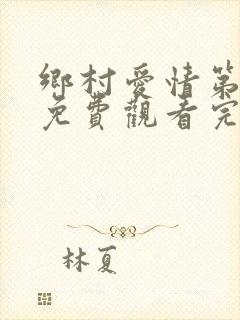 鄉村愛情第
免費觀看完
林夏